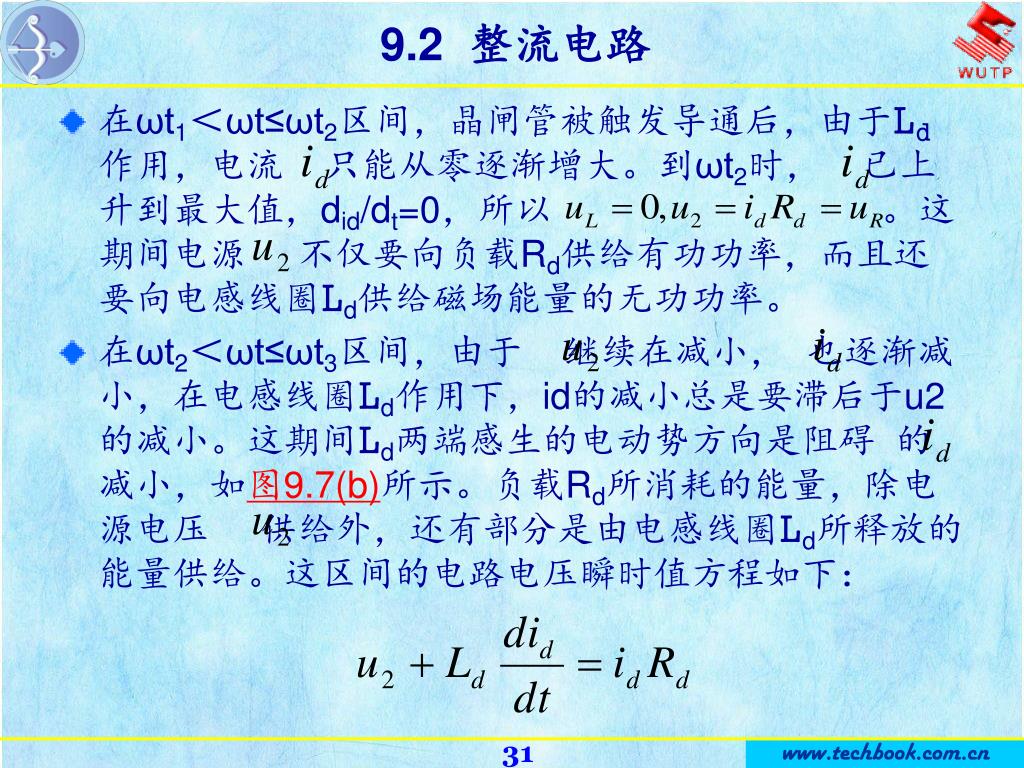 9.2 整流电路
WUTP
在ωt₁＜ωt≤ωt₂区间，晶闸管被触发导通后，由于L_d
作用，电流 i_d 只能从零逐渐增大。到ωt₂时， i_d 已上
升到最大值，d_id/d_t=0，所以 u_L = 0, u_2 = i_d R_d = u_R。这
期间电源 u_2 不仅要向负载R_d供给有功功率，而且还
要向电感线圈L_d供给磁场能量的无功功率。
在ωt₂＜ωt≤ωt₃区间，由于 u_2 继续在减小， i_d 也逐渐减
小，在电感线圈L_d作用下，id的减小总是要滞后于u2
的减小。这期间L_d两端感生的电动势方向是阻碍 i_d 的
减小，如图9.7(b)所示。负载R_d所消耗的能量，除电
源电压 u_2 供给外，还有部分是由电感线圈L_d所释放的
能量供给。这区间的电路电压瞬时值方程如下：
u_2 + L_d di_d/dt = i_d R_d
31
www.techbook.com.cn